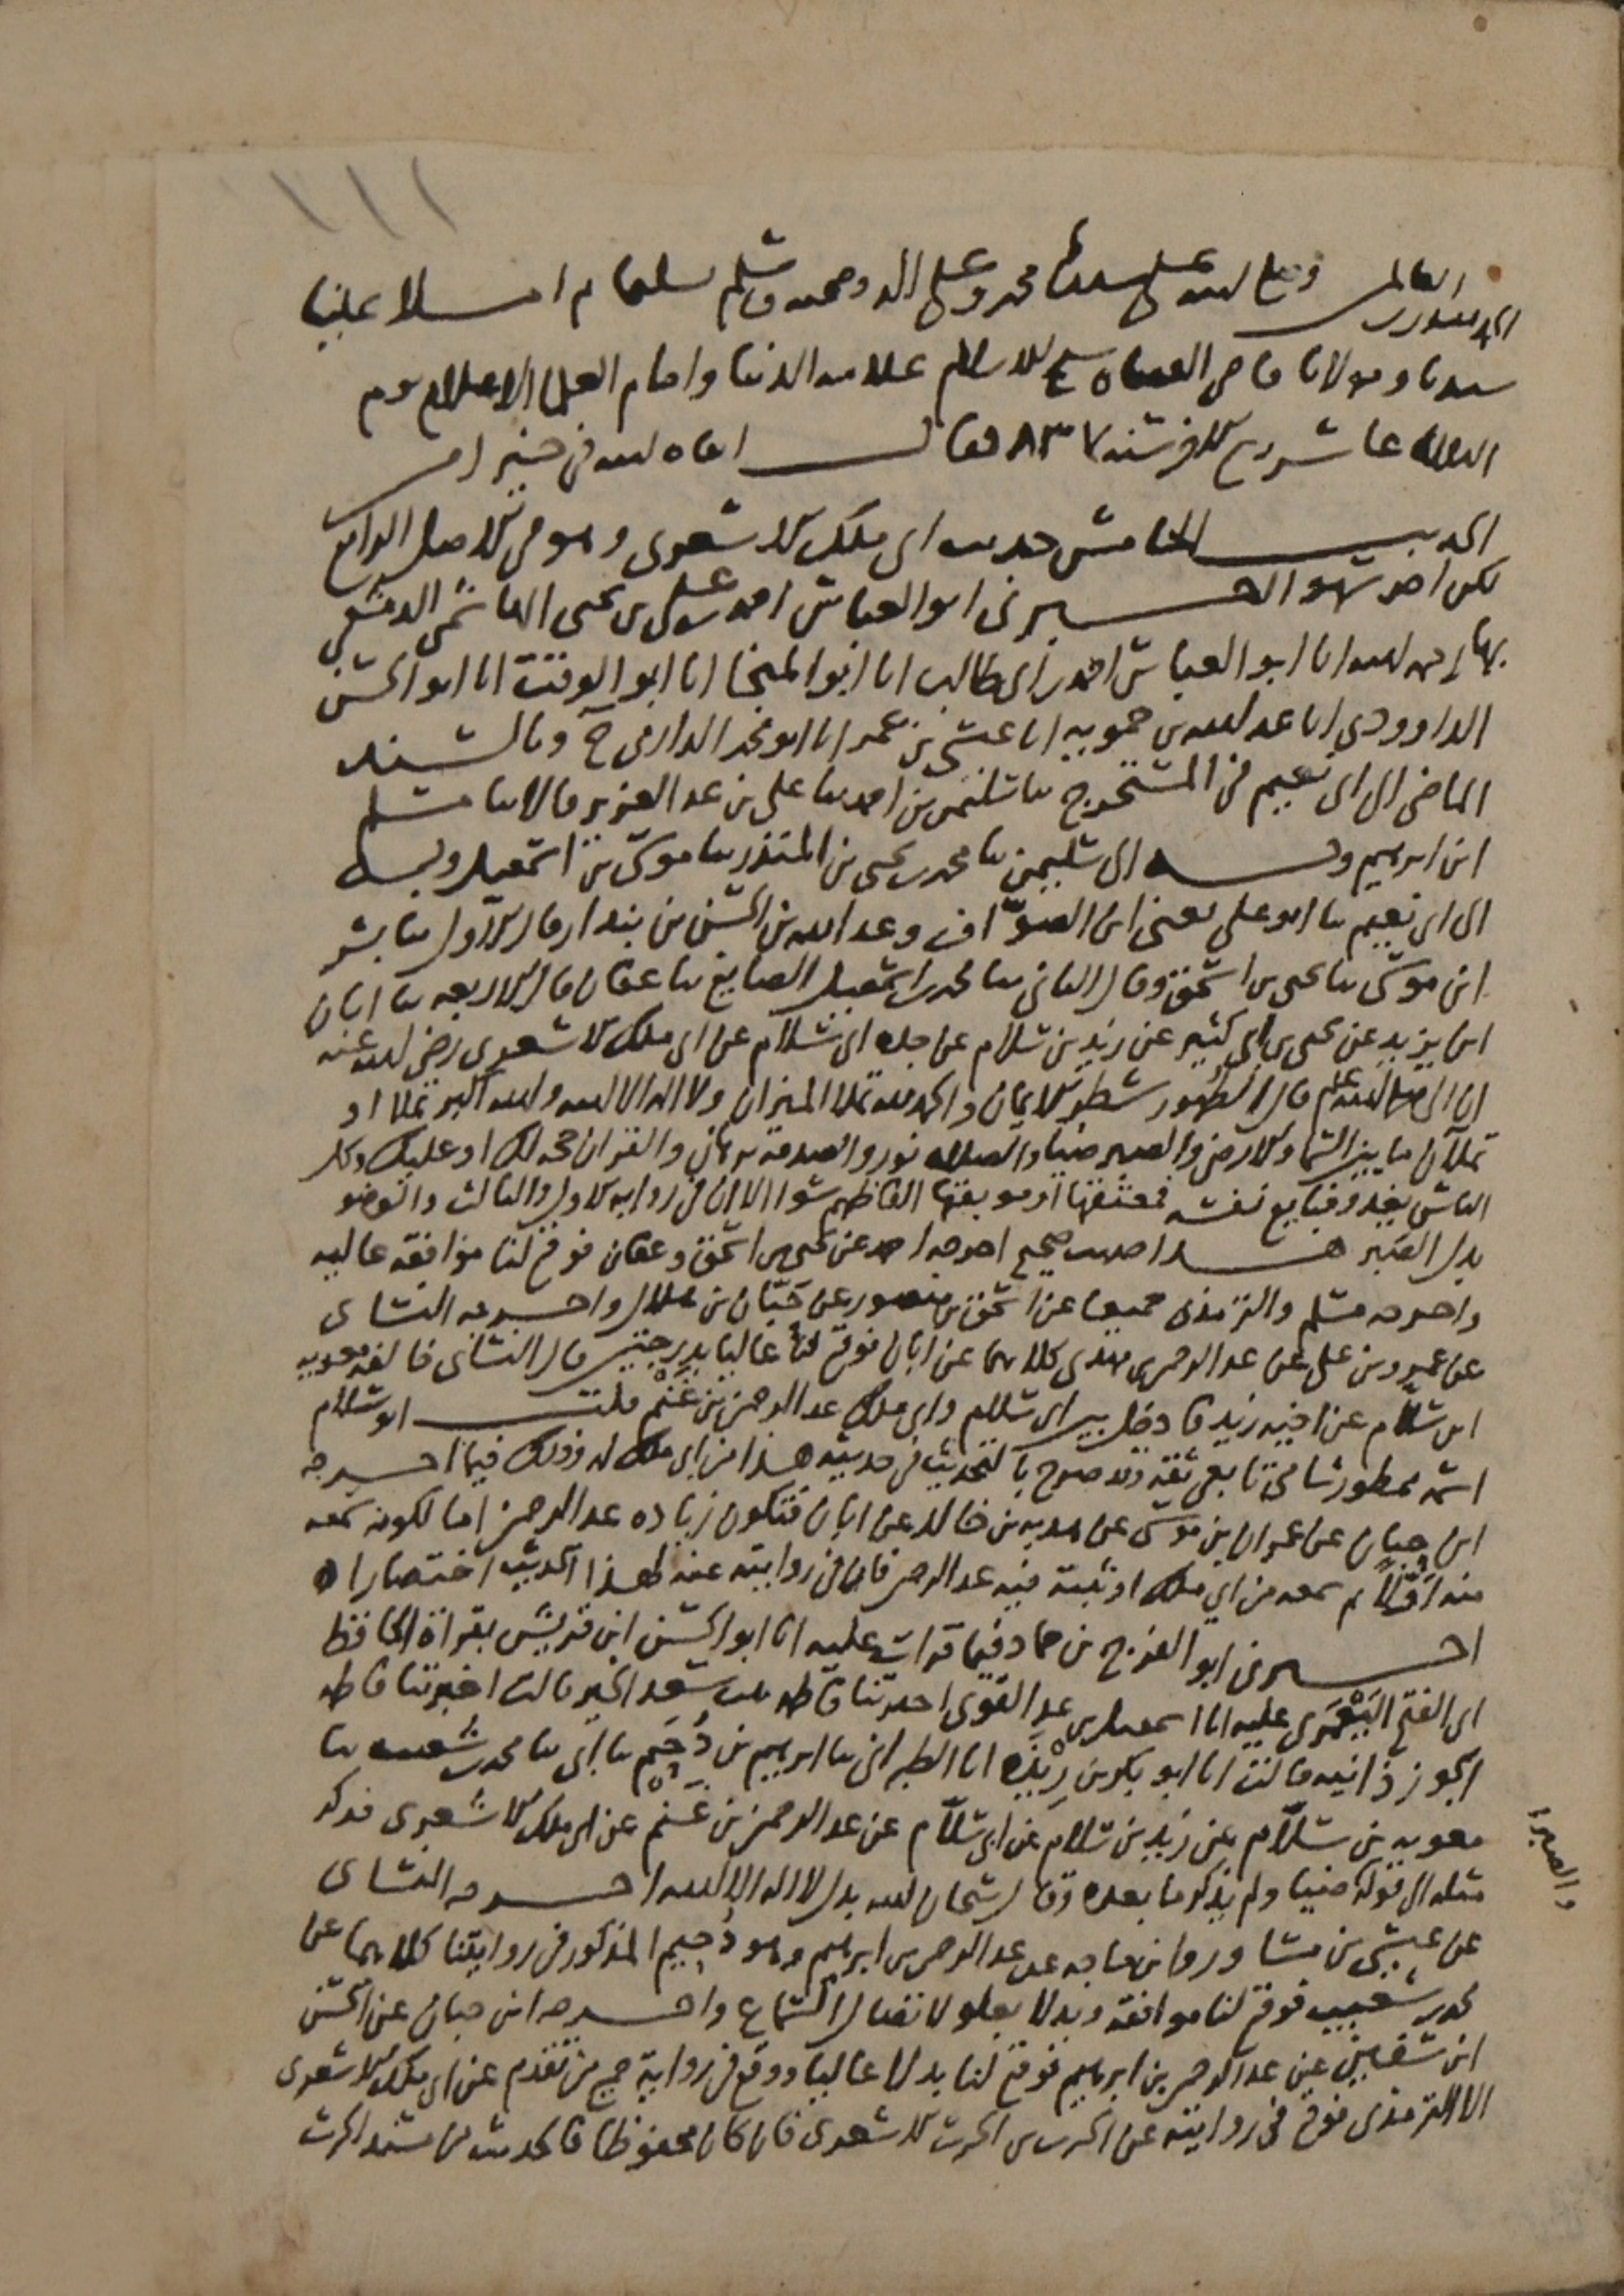 ١١١
الحمد لله رب العالمين وصلى الله على سيدنا محمد وعلى اله وصحبه وسلم تسليما ثم املا علينا
سيدنا ومولانا قاضى القضاه شيخ الاسلام علامه الدنيا وامام العلما الاعلام يوم
الثلاثا عاشر ربيع الاخر سنه ٨٣٧ فقال ابقاه الله فى خير امين
الحديث الخامس حديث ابى ملك الاشعرى وهو فى الاصل الرابع
لكن اخر سهوا اخبرنى ابو العباس احمد بن على بن يحيى الهاشمى الدمشقى
بها رحمه الله انا ابو العباس احمد بن ابى طالب انا ابو المنجا انا ابو الوقت انا ابو الحسن
الداوودى انا عبد الله بن حمويه انا عيسى بن عمر انا ابو محمد الدارمى ح وبالسند
الماضى الى ابى نعيم فى المستخرج ثنا سليمن بن احمد ثنا على بن عبد العزيز قالا ثنا مسلم
ابن ابرهيم وبه الى سليمن ثنا محمد بن يحيى بن المنذر ثنا موسى بن اسمعيل وبه
الى ابى نعيم ثنا ابو على يعنى ابن الصوّاف وعبد الله بن الحسن بن بندار قال الاول ثنا بشر
ابن موسى ثنا يحيى بن اسحق وقال الثانى ثنا محمد بن اسمعيل الصايغ ثنا عفان قال الاربعه ثنا ابان
ابن يزيد عن يحيى بن ابى كثير عن زيد بن سلام عن جده ابى سلّام عن ابى ملك الاشعرى رضى الله عنه
ان النبى صلى الله عليه وسلم قال الطُهور شطر الايمان والحمد لله تملا الميزان ولا اله الا الله والله اكبر تملا او
تملآن ما بين السما والارض والصبر ضيا والصلاه نور والصدقه برهان والقران حجه لك او عليك وكل
الناس يغدو فبايع نفسه فمعتقها او موبقها الفاظهم سوا الا ان فى روايه الاول والثالث والوضو
بدل الصبر هذا حديث صحيح اخرجه احمد عن يحيى بن اسحق وعفان فوقع لنا موافقه عاليه
واخرجه مسلم والترمذى جميعا عن اسحق بن منصور عن حَبّان بن هلال واخرجه النساى
عن عمرو بن على عن عبد الرحمن بن مهدى كلاهما عن ابان فوقع لنا عاليا بدرجتين قال النساى خالفه معويه
ابن سلّام عن اخيه زيد فادخل بين ابى سلام وابى ملك عبد الرحمن بن غَنْم قلت ابو سلام
اسمه ممطور شامى تابعى ثقه وقد صرح بالتحديث فى حديثه هذا من ابى ملك له وذلك فيما اخرجه
ابن حبان عن عمران بن موسى عن هدبه بن خالد عن ابان فتكون زياده عبد الرحمن اما لكونه سمعه
منه اوّلا ثم سمعه من ابى ملك او ثبته فيه عبد الرحمن فان فى روايته عنه لهذا الحديث اختصارا
اخبرنى ابو الفرج بن حماد فيما قرات عليه انا ابو الحسن ابن قريش بقراة الحافظ
ابى الفتح اليَعْمَرى عليه انا اسمعيل بن عبد القوى اخبرتنا فاطمه بنت سعد الخير قالت اخبرتنا فاطمه
الجوزذانيه قالت انا ابو بكر بن رِيْذَه انا الطبرانى ثنا ابرهيم بن دُحَيم ثنا ابى ثنا محمد بن شعيب ثنا
معويه بن سلّام عن زيد بن سلام عن ابى سلّام عن عبد الرحمن بن غَنم عن ابى ملك الاشعرى فذكر
مثله الى قوله ضيا ولم يذكر ما بعده وقال سبحان الله بدل لا اله الا الله اخرجه النساى
عن عيسى بن مساور وابن ماجه عن عبد الرحمن بن ابرهيم وهو دُحيم المذكور فى روايتنا كلاهما عن
محمد بن شعيب فوقع لنا موافقه وبدلا بعلو لاتصال السماع واخرجه ابن حبان عن الحسن
ابن سفين عن عبد الرحمن بن ابرهيم فوقع لنا بدلا عاليا ووقع فى رواية جميع من تقدم عن ابى ملك الاشعرى
الا الترمذى فوقع فى روايته عن الحرث بن الحرث الاشعرى فان كان محفوظا فالحديث من مسند الحرث
والصبر